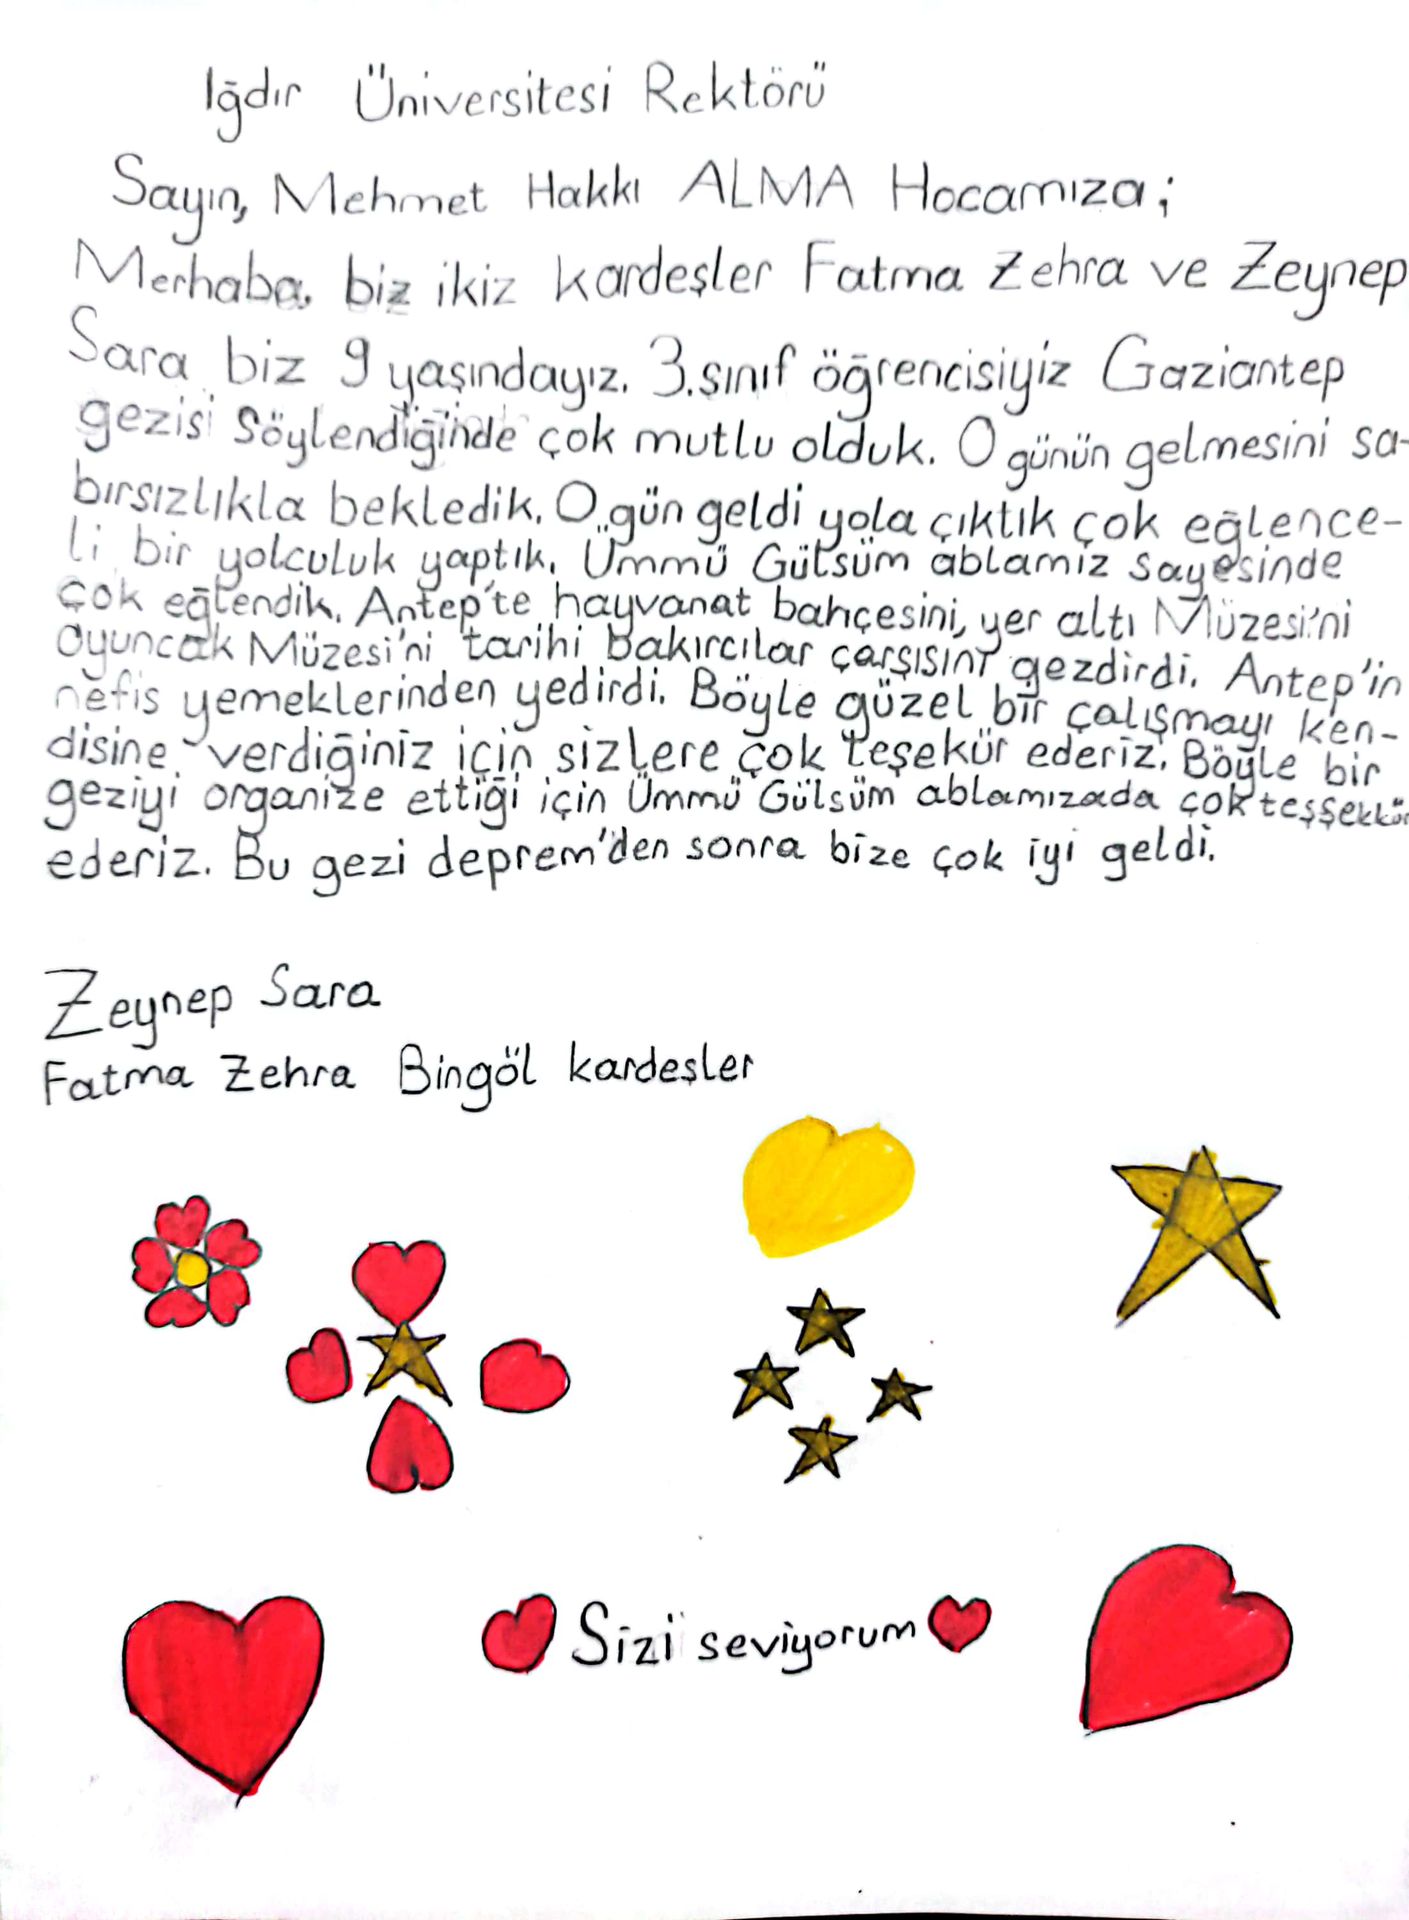 Iğdır Üniversitesi Rektörü
Sayın, Mehmet Hakkı ALMA Hocamıza;
Merhaba, biz ikiz kardeşler Fatma Zehra ve Zeynep
Sara biz 9 yaşındayız. 3.sınıf öğrencisiyiz Gaziantep
gezisi Söylendiğinde çok mutlu olduk. O günün gelmesini sa-
bırsızlıkla bekledik. O gün geldi yola çıktık çok eğlence-
li bir yolculuk yaptık. Ümmü Gülsüm ablamız sayesinde
çok eğlendik. Antep'te hayvanat bahçesini, yer altı Müzesi'ni
Oyuncak Müzesi'ni tarihi bakırcılar çarşısını gezdirdi. Antep'in
nefis yemeklerinden yedirdi. Böyle güzel bir çalışmayı ken-
disine verdiğiniz için sizlere çok teşekür ederiz. Böyle bir
geziyi organize ettiği için Ümmü Gülsüm ablamızada çok teşşekkür
ederiz. Bu gezi deprem'den sonra bize çok iyi geldi.
Zeynep Sara
Fatma Zehra Bingöl kardeşler
Sizi seviyorum